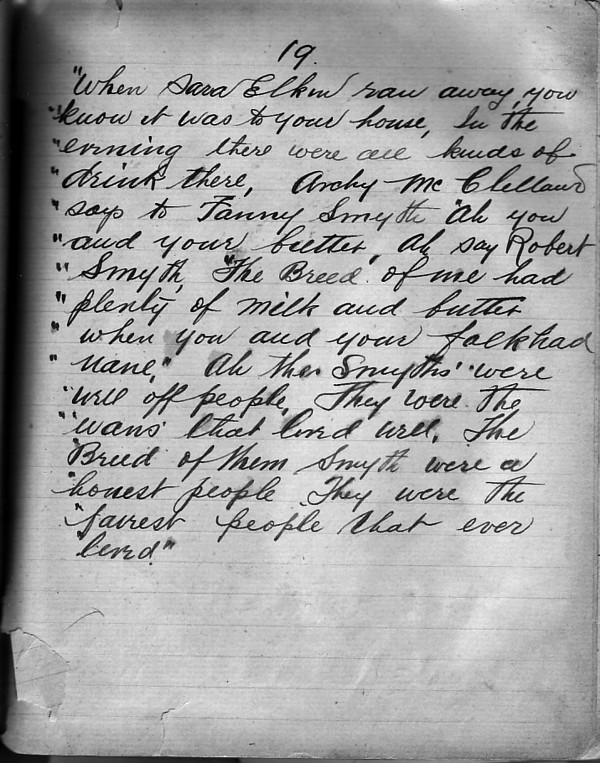 19.
"When Sara Elkin ran away, you
"know it was to your house, In the
"evening there were all kinds of
"drink there, Archy Mc Clelland
"says to Fanny Smyth "Ah you
"and your butter, Ah say Robert
"Smyth, "The Breed" of me had
"plenty of milk and butter
"when you and your folk had
"nane," Ah the Smyths' were
"well off people, They were the
"wans' that lived well, The
"Breed' of them Smyth were a
"honest people They were the
"fairest people that ever
"lived"